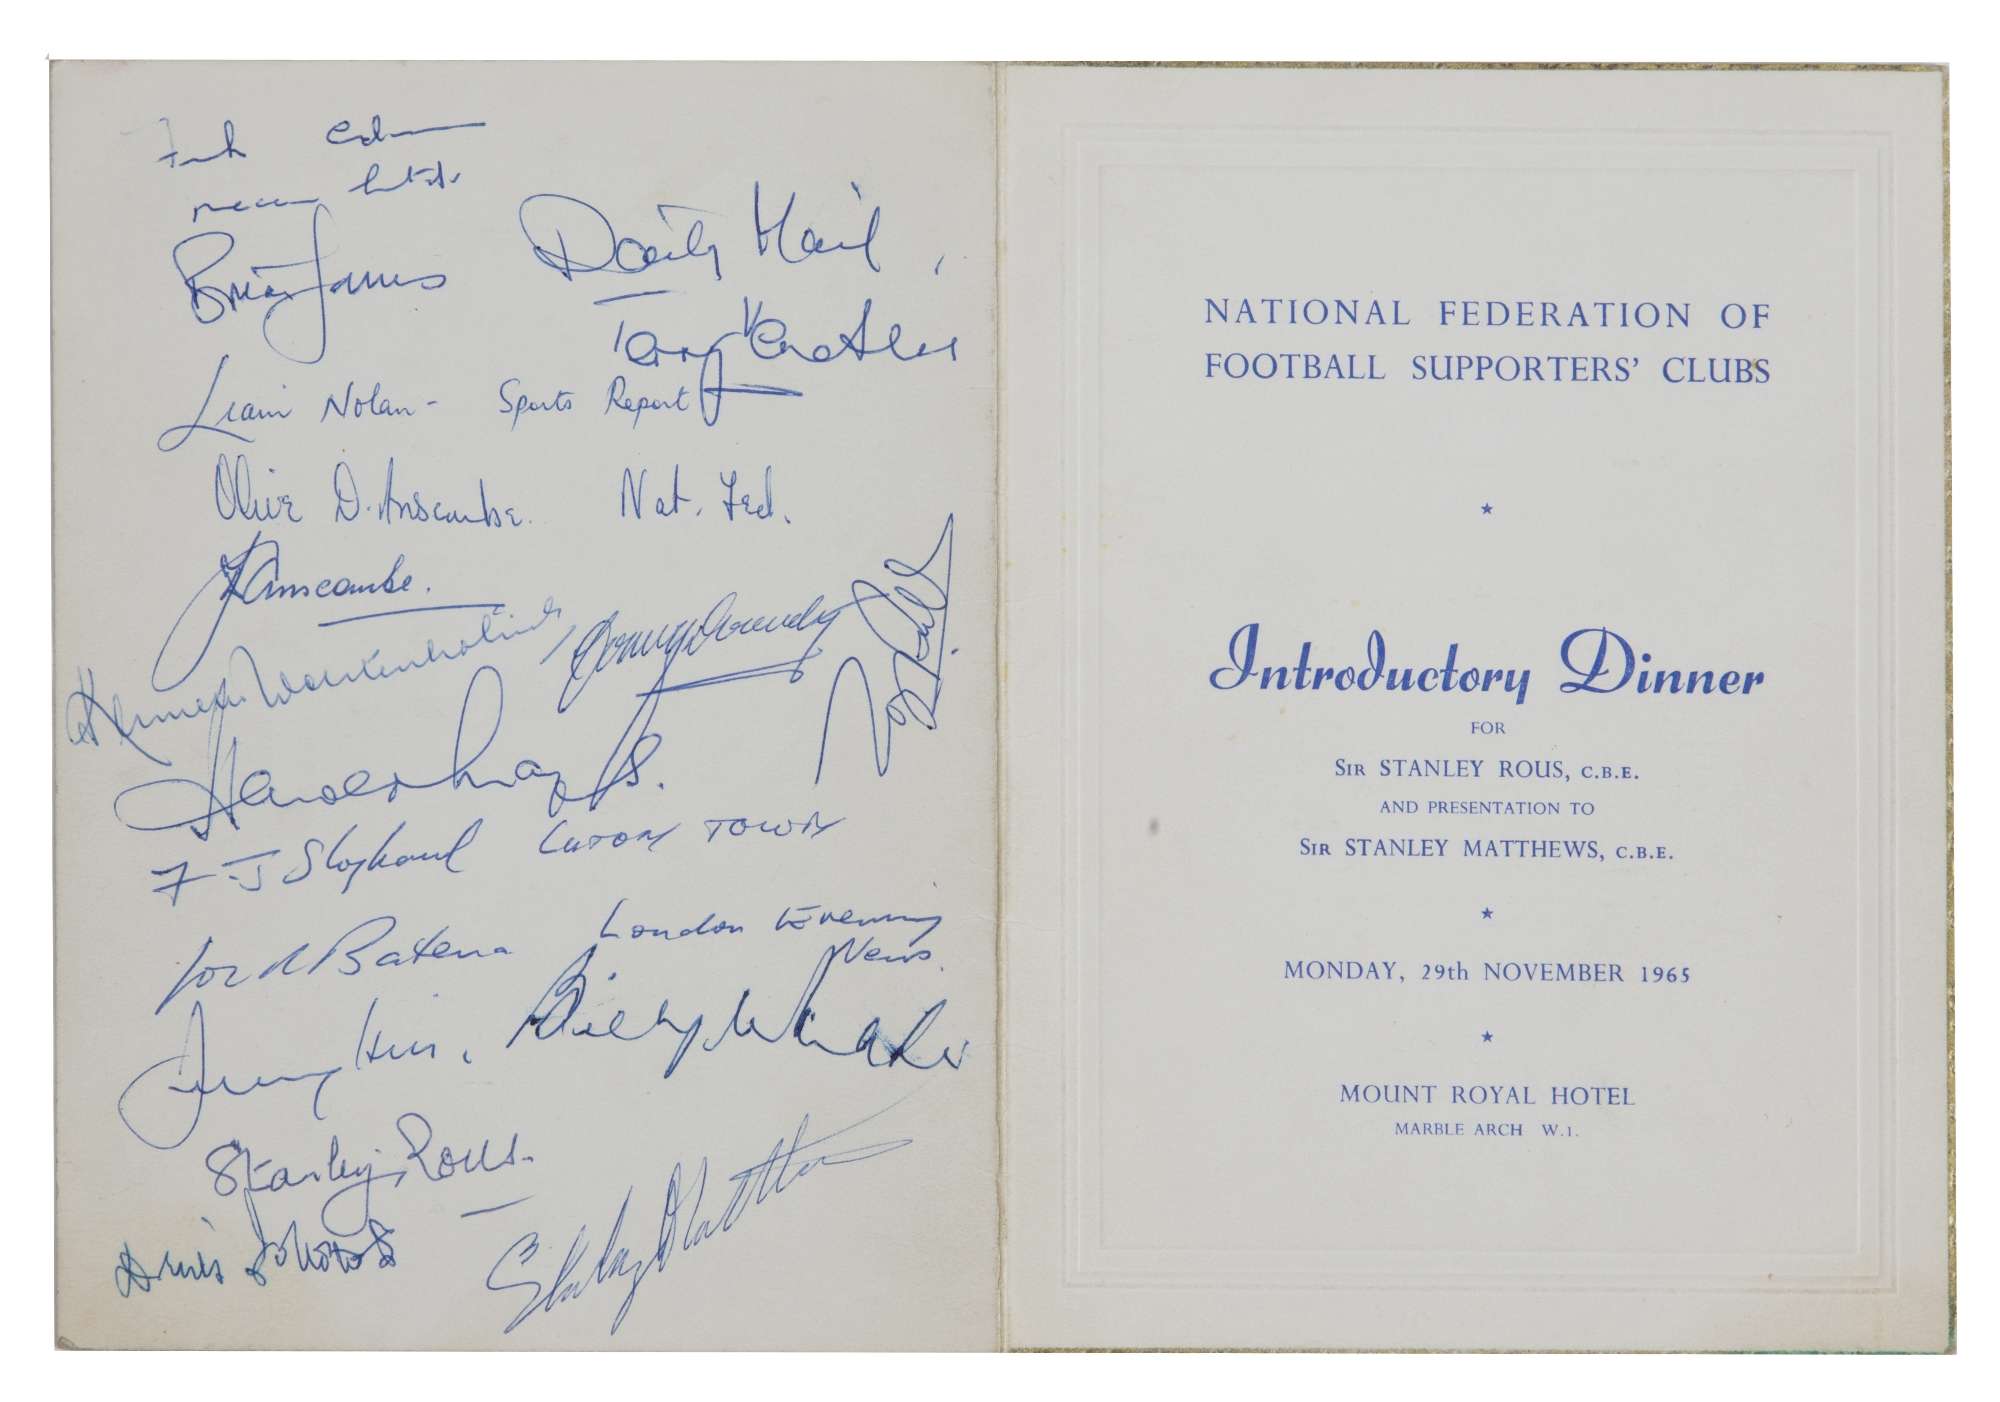 Brian James Daily Mail,
Terry Venables
Liam Nolan - Sports Report
Olive D. Anscombe. Nat. Fed.
Anscombe.
Kenneth Wolstenholme
Harold Mayes.
F J LUTON TOWN
London Evening
News.
Jimmy Hill. Billy Wright
Stanley Rous.
Stanley Matthews
NATIONAL FEDERATION OF
FOOTBALL SUPPORTERS' CLUBS
Introductory Dinner
FOR
SIR STANLEY ROUS, C.B.E.
AND PRESENTATION TO
SIR STANLEY MATTHEWS, C.B.E.
MONDAY, 29th NOVEMBER 1965
MOUNT ROYAL HOTEL
MARBLE ARCH W.1.